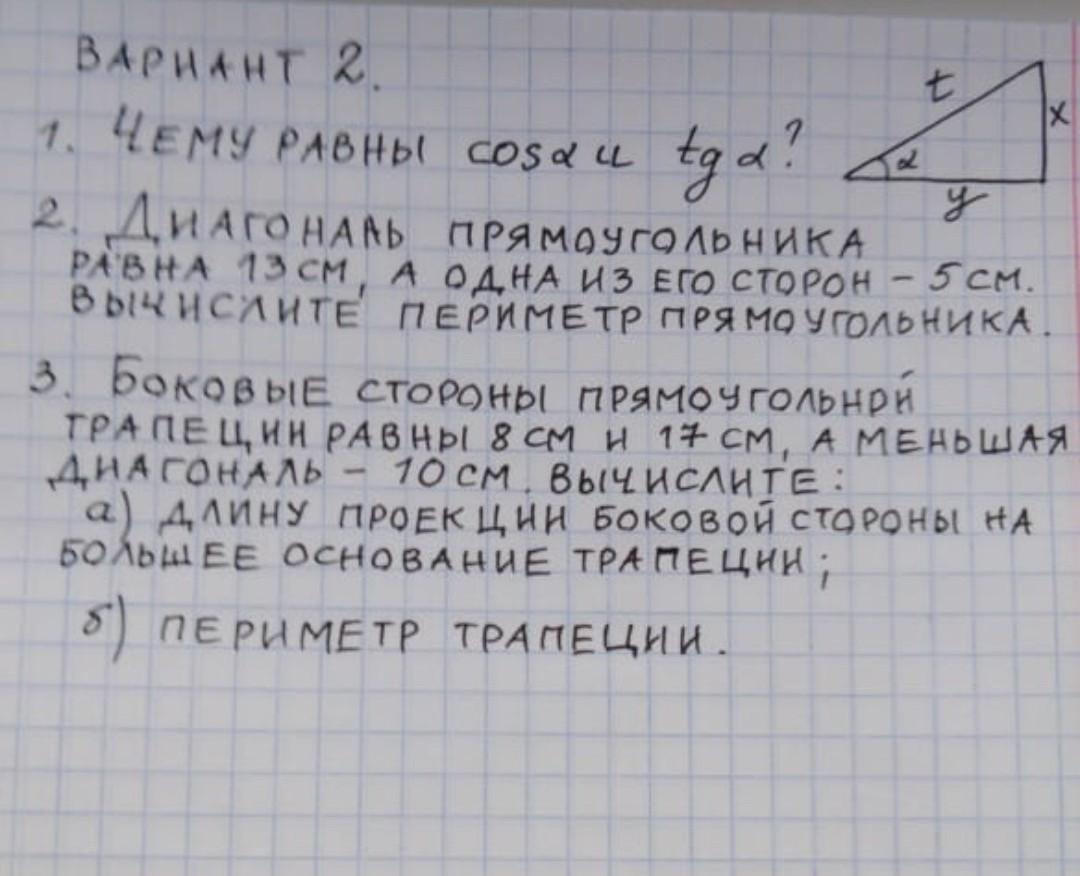 ВАРИАНТ 2.
t
x
α
y
1. ЧЕМУ РАВНЫ cosα и tg α?
2. ДИАГОНАЛЬ ПРЯМОУГОЛЬНИКА
РАВНА 13 СМ, А ОДНА ИЗ ЕГО СТОРОН – 5 СМ.
ВЫЧИСЛИТЕ ПЕРИМЕТР ПРЯМОУГОЛЬНИКА.
3. БОКОВЫЕ СТОРОНЫ ПРЯМОУГОЛЬНОЙ
ТРАПЕЦИИ РАВНЫ 8 СМ И 17 СМ, А МЕНЬШАЯ
ДИАГОНАЛЬ – 10 СМ. ВЫЧИСЛИТЕ:
а) ДЛИНУ ПРОЕКЦИИ БОКОВОЙ СТОРОНЫ НА
БОЛЬШЕЕ ОСНОВАНИЕ ТРАПЕЦИИ;
б) ПЕРИМЕТР ТРАПЕЦИИ.